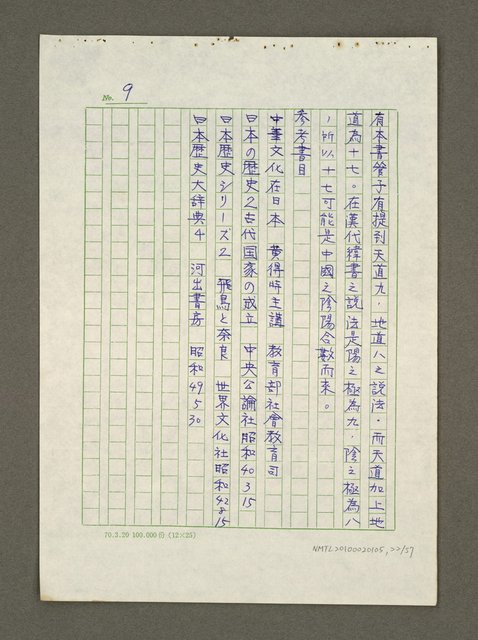 No. 9
有本書管子有提到天道九，地道八之說法，而天道加上地
道為十七。在漢代緯書之說法是陽之極為九，陰之極為八
，所以十七可能是中國之陰陽合數而來。
參考書目
中華文化在日本 黃得時主講 教育部社會教育司
日本の歷史2古代国家の成立 中央公論社昭和40 3 15
日本歷史シリーズ2 飛鳥と奈良 世界文化社昭和42 8 15
日本歷史大辞典4 河出書房 昭和49 5 30
70.3.20 100.000份 (12×25)
NMTL20100020105, 22/57